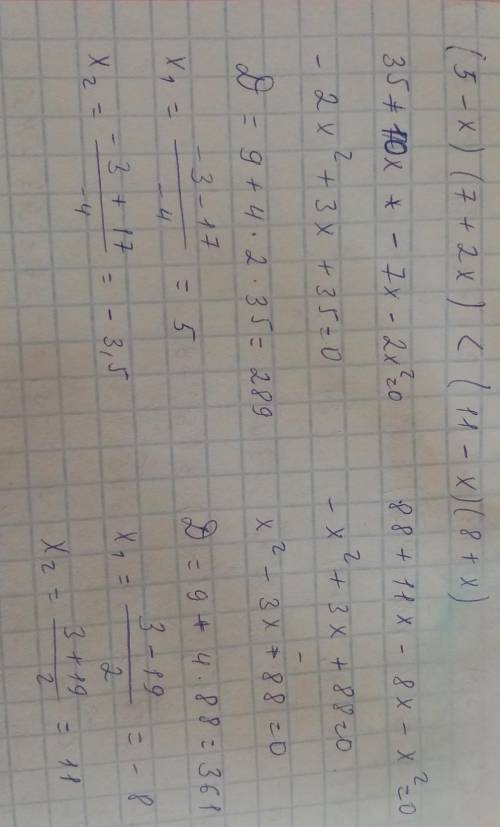 (5 - x) (7 + 2x) < (11 - x)(8 + x)
35 + 10x - 7x - 2x² = 0
- 2x² + 3x + 35 = 0
D = 9 + 4 · 2 · 35 = 289
x₁ = \frac{-3 - 17}{-4} = 5
x₂ = \frac{-3 + 17}{-4} = - 3,5
88 + 11x - 8x - x² = 0
- x² + 3x + 88 = 0
x² - 3x - 88 = 0
D = 9 + 4 · 88 = 361
x₁ = \frac{3 - 19}{2} = - 8
x₂ = \frac{3 + 19}{2} = 11